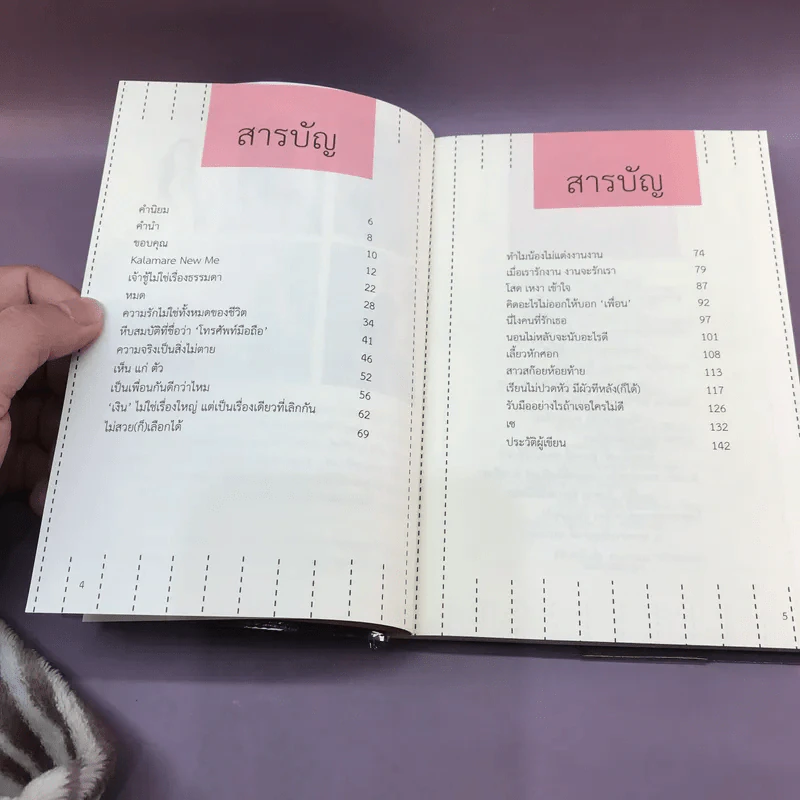 สารบัญ
คำนิยม 6
คำนำ 8
ขอบคุณ 10
Kalamare New Me 12
เจ้าชู้ไม่ใช่เรื่องธรรมดา 22
หมด 28
ความรักไม่ใช่ทั้งหมดของชีวิต 34
หีบสมบัติที่ชื่อว่า ‘โทรศัพท์มือถือ’ 41
ความจริงเป็นสิ่งไม่ตาย 46
เห็น แก่ ตัว 52
เป็นเพื่อนกันดีกว่าไหม 56
‘เงิน’ ไม่ใช่เรื่องใหญ่ แต่เป็นเรื่องเดียวที่เลิกกัน 62
ไม่สวย(ก็)เลือกได้ 69
4
สารบัญ
ทำไมน้องไม่แต่งงานงาน 74
เมื่อเรารักงาน งานจะรักเรา 79
โสด เหงา เข้าใจ 87
คิดอะไรไม่ออกให้บอก ‘เพื่อน’ 92
นี่ไงคนที่รักเธอ 97
นอนไม่หลับจะนับอะไรดี 101
เลี้ยวหักศอก 108
สาวสก๊อยห้อยท้าย 113
เรียนไม่ปวดหัว มีผัวทีหลัง(ก็ได้) 117
รับมืออย่างไรถ้าเจอใครไม่ดี 126
เซ 132
ประวัติผู้เขียน 142
5